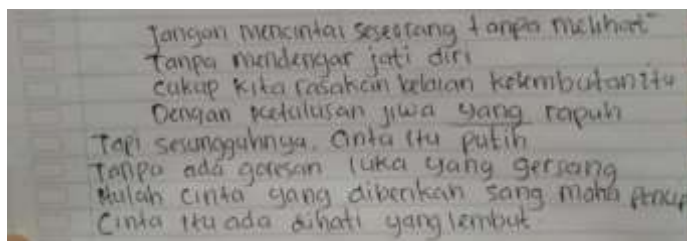 Jangan mencintai seseorang tanpa melihat
Tanpa mendengar jati diri
Cukup kita rasakan belaian kelembutan itu
Dengan ketulusan jiwa yang rapuh
Tapi sesungguhnya. Cinta itu putih
Tanpa ada goresan luka yang gersang
Mulah cinta yang diberikan sang maha pencip
Cinta itu ada dihati yang lembut